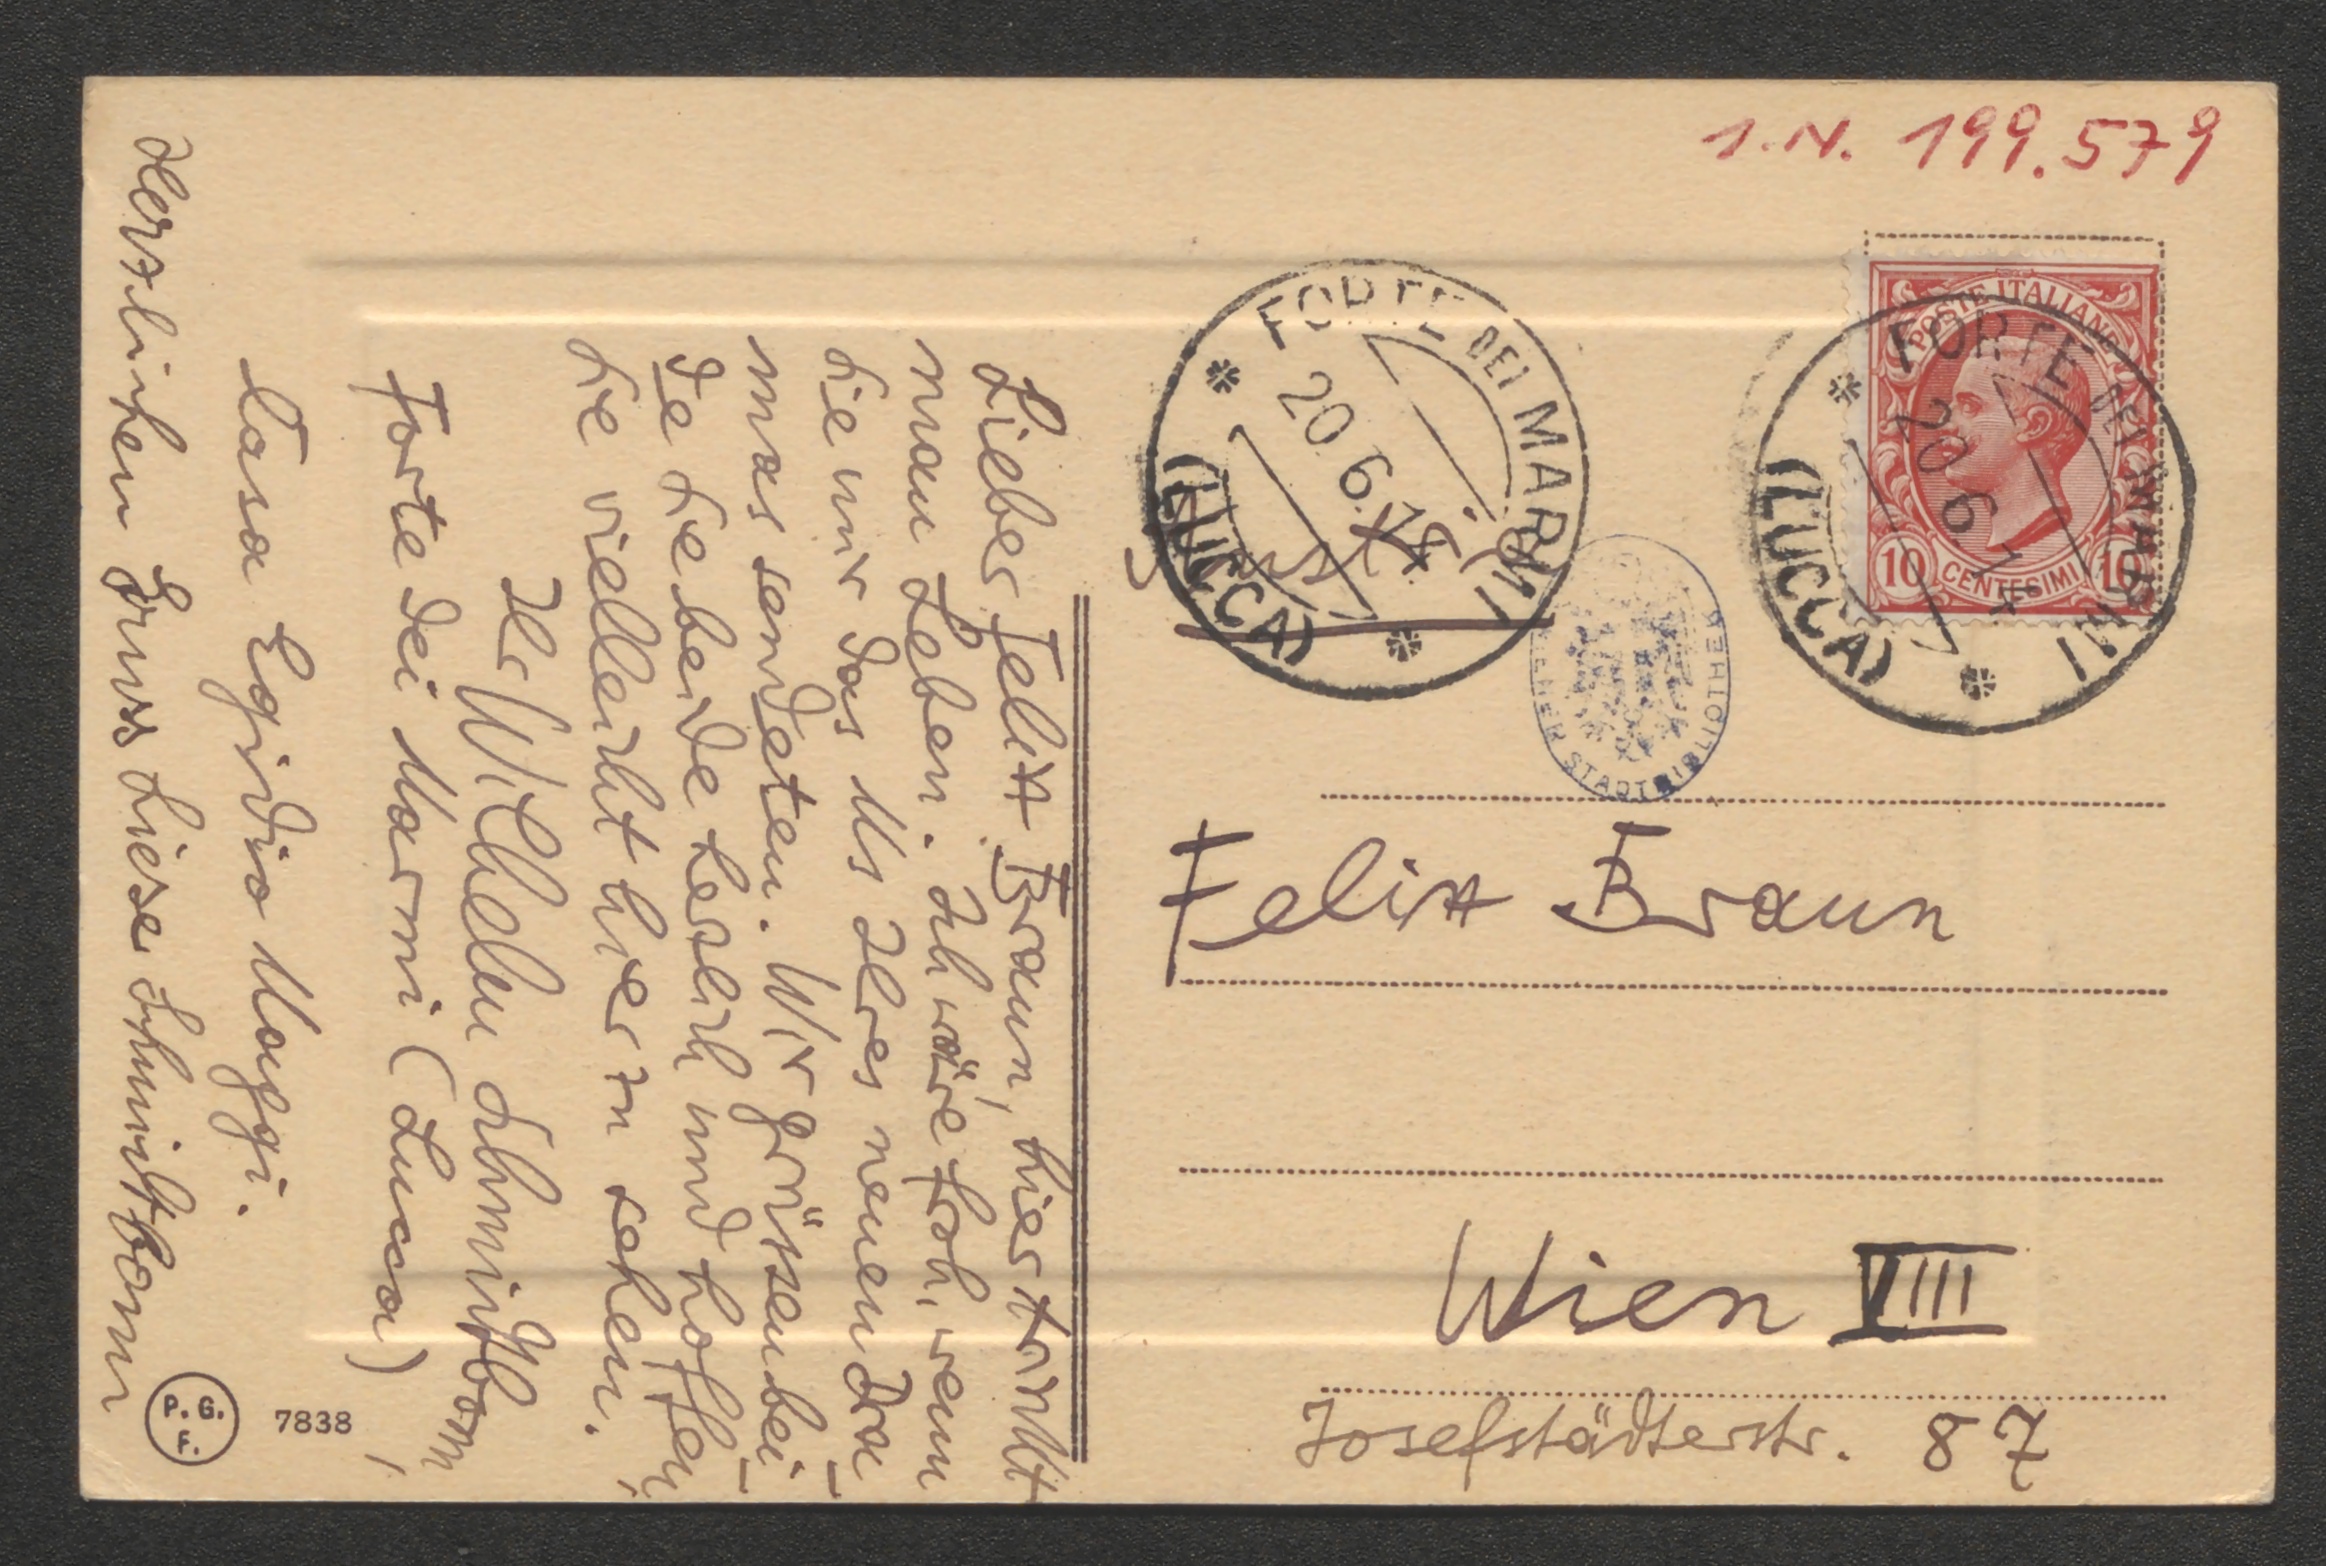 I.N. 199.579
POSTE ITALIANE
10 CENTESIMI 10
FORTE DEI MARMI
20.6.14
(LUCCA)
FORTE DEI MARMI
20.6.14
(LUCCA)
WIENER STADTBIBLIOTHEK
Felix Braun
Wien VIII
Josefstädterstr. 87
Lieber Felix Braun, hier trinkt
man Leben. Ich wäre froh, wenn
Sie mir das Ms Ihres neuen Dra-
mas sendeten. Wir grüssen bei-
de Sie beide herzlich und hoffen,
Sie vielleicht hier zu sehen.
Ihr Wilhelm Schmidtbonn,
Forte dei Marmi (Lucca)
Casa Egidio Maggi.
Herzlichen Gruss Liese Schmidtbonn
P. G.
F.
7838